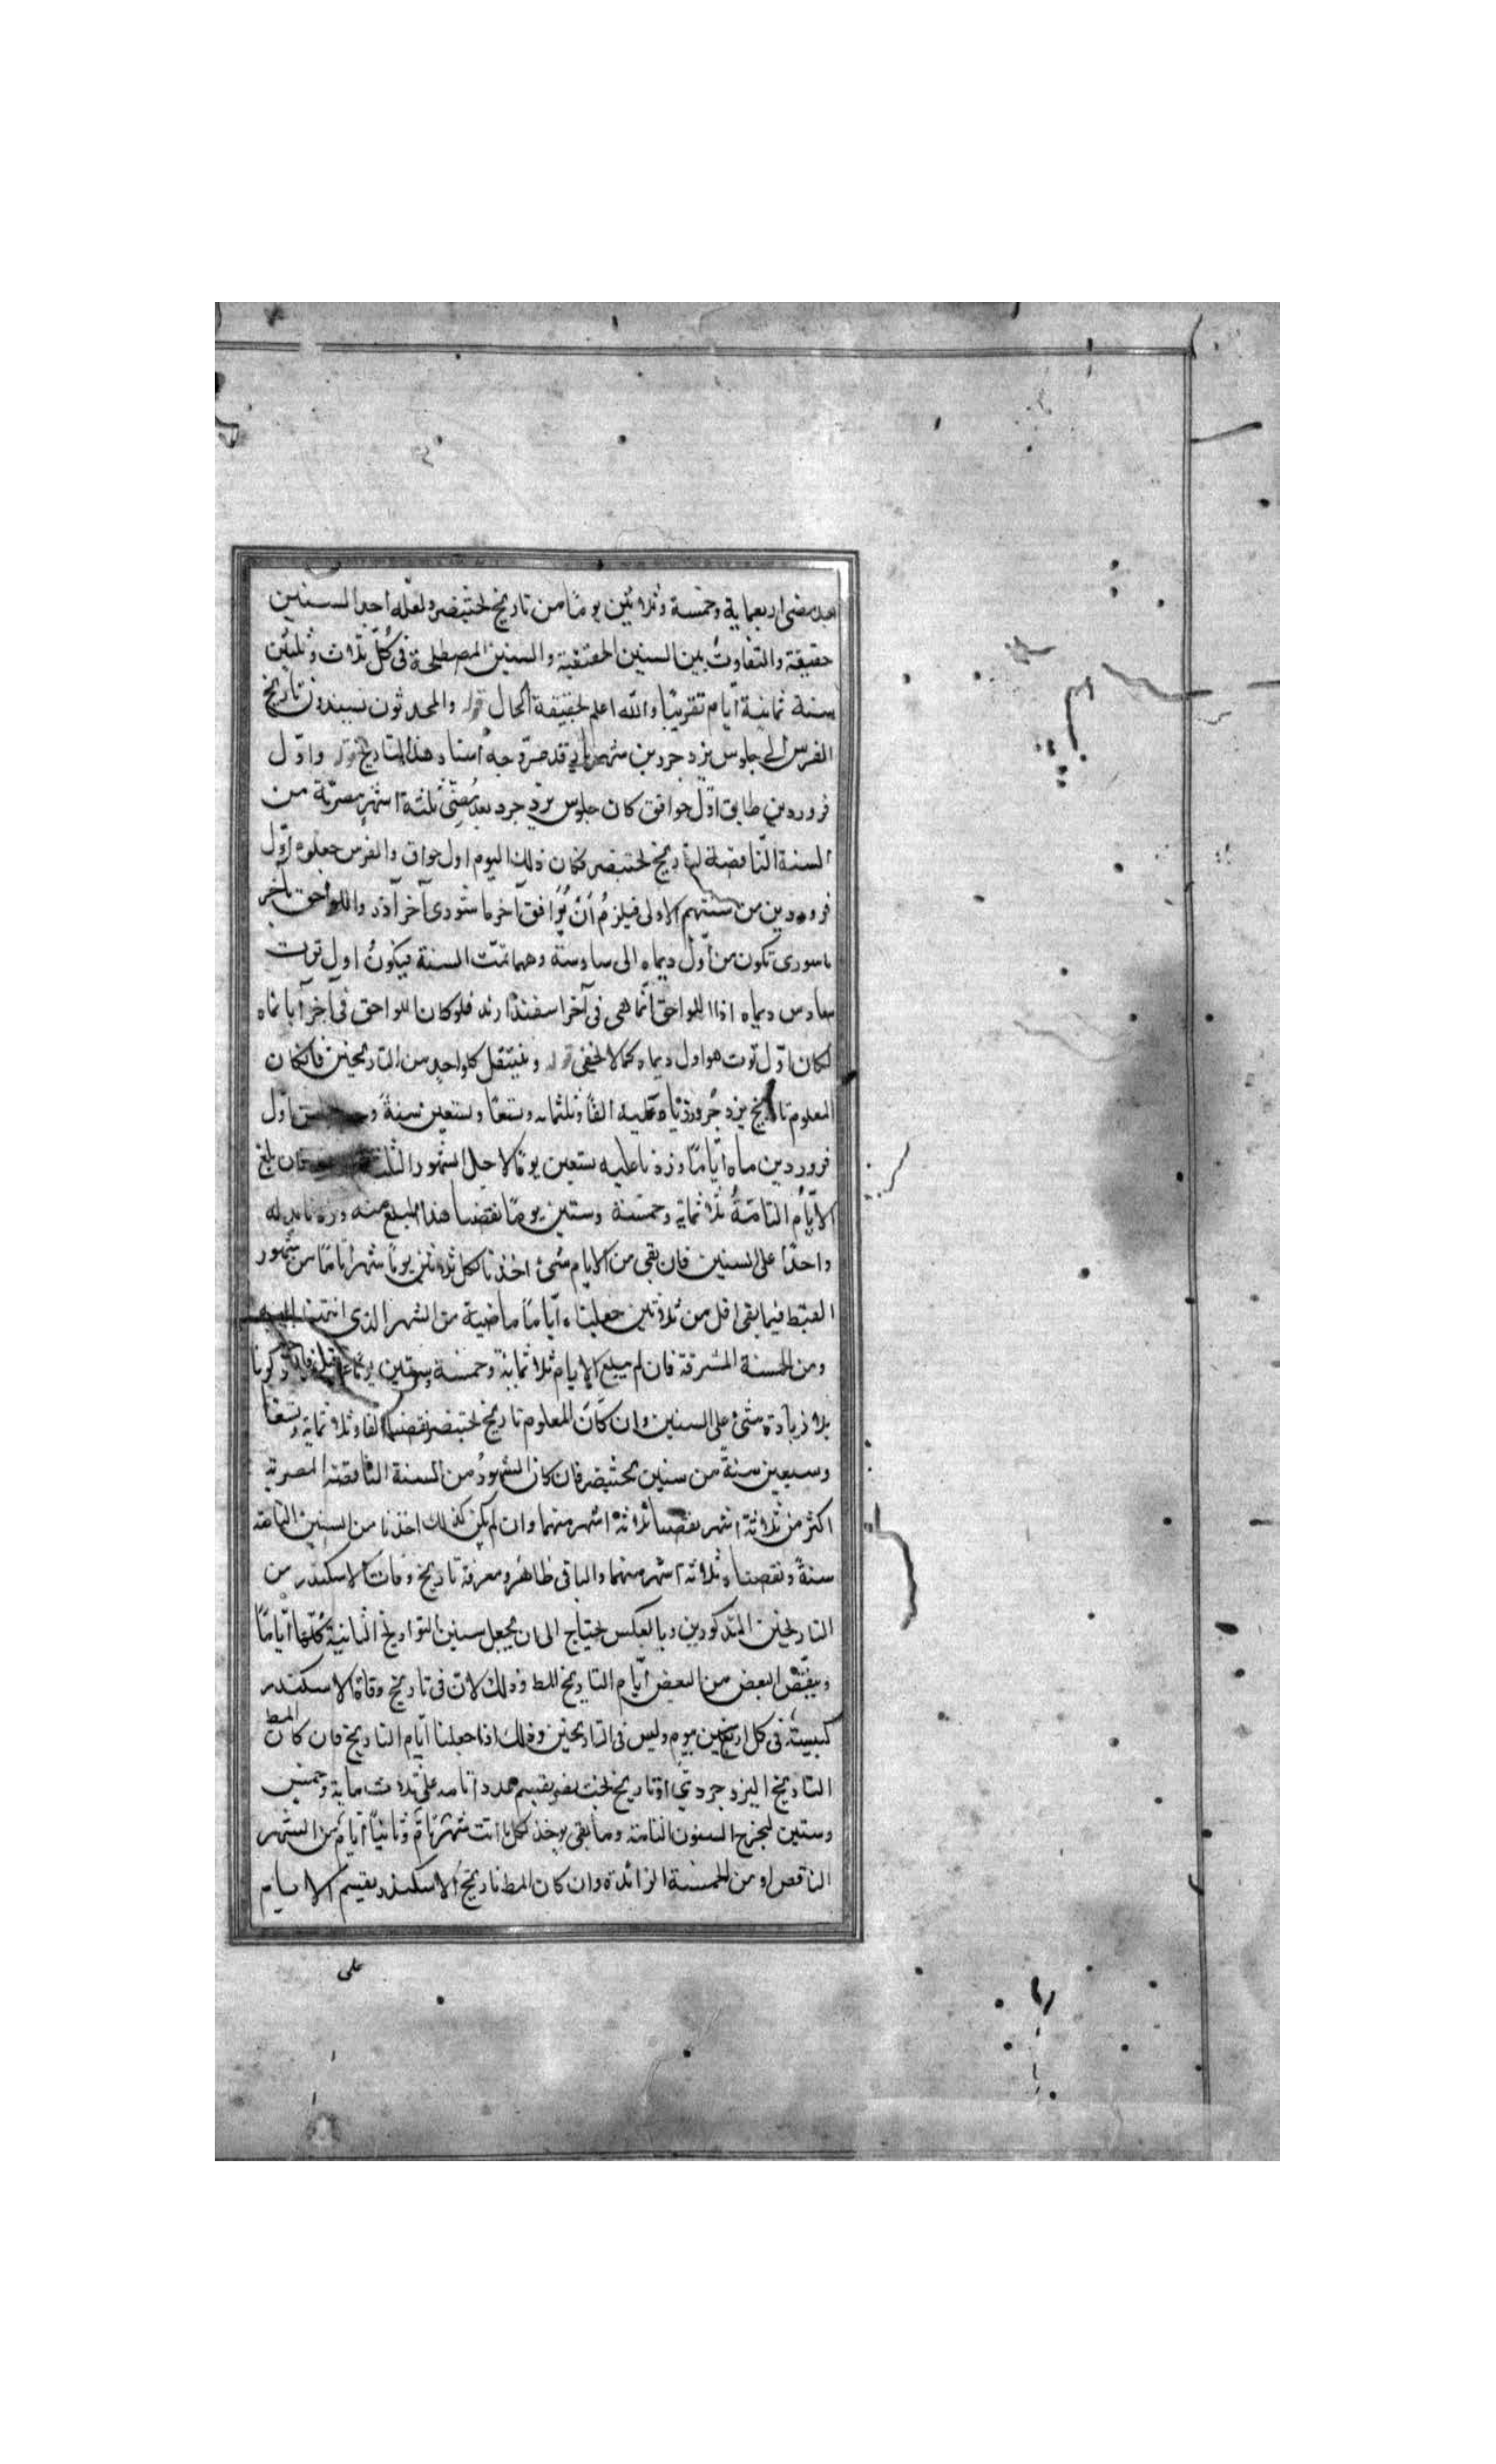 بعد مضى اربعماية وخمسة وثلاثين يوما من تاريخ بختنصر ولعله احد السنين
حقيقة والتفاوت بين السنين الحقيقية والسنين المصطلحة فى كل ثلاث وثلثين
سنة ثمانية ايام تقريبا والله اعلم بحقيقة الحال قوله والمحدثون يسندون تاريخ
الفرس الى جلوس يزدجرد بن شهريار قد مر وجه اسناد هذا التاريخ قوله واول
فروردين طابق اول حوافق كان جلوس يزدجرد بعد مضى ثلثة اشهر مصرية من
السنة الناقصة لتاريخ بختنصر فكان ذلك اليوم اول حواق والفرس جعلوه اول
فروردين من سنتهم الاولى فيلزم ان يوافق آخر ماشورى آخر آذر واللواحق بآخر
ماسورى تكون من اول ديماه الى سادسة وهما تمت السنة فيكون اول توت
سادس ديماه اذا اللواحق انما هى فى آخر اسفندارند فلو كان اللواحق فى آخر آبانماه
لكان اول توت هو اول ديماه كما لا يخفى قوله وينتقل كلواحد من التاريخين فان كان
المعلوم تاريخ يزدجرد زدناه عليه الفا وثلثمايه وتسعا وسبعين سنة اول
فروردين ماه اياما وزدنا عليه تسعين يوما لاجل الشهور فان بلغ
الايام التامة ثلاثماية وخمسة وستين يوما نقصنا هذا المبلغ منه وزدنا بدله
واحدا على السنين فان بقى من الايام شئ اخذنا لكل ثلاثين يوما شهرا تاما من شهور
القبط فيما بقى اقل من ثلاثين جعلناه اياما ماضية من الشهر الذى انتهت اليه
ومن الخمسة المسرقة فان لم يبلغ الايام ثلاثماية وخمسة وستين يوما
بلا زيادة شئ على السنين وان كان المعلوم تاريخ بختنصر نقصنا الفا وثلاثماية وتسعا
وسبعين سنة من سنين بختنصر فان كان الشهور من السنة الناقصة المصرية
اكثر من ثلاثة اشهر نقصنا ثلاثة اشهر منها وان لم يكن كذلك اخذنا من السنين التامة
سنة ونقصناه ثلاثة اشهر منها والباقى ظاهر ومعرفة تاريخ وفات الاسكندر من
التاريخين المذكورين وبالعكس يحتاج الى ان يجعل سنين التواريخ الثانية كلها اياما
وينقص البعض من البعض ايام التاريخ للط وذلك لان فى تاريخ وفاة الاسكندر
كبيسة فى كل اربع سنين بيوم وليس فى التاريخين وذلك اذا جعلنا ايام التاريخ فان كان المط
التاريخ اليزدجردي او تاريخ بخت نصر يقسم عدد ايامه على ثلاث ماية وخمس
وستين ليخرج السنون التامة وما بقى يوخذ لكل ثلثين شهر تام وثانيا ايام من الشهر
الناقص او من الخمسة الزائدة وان كان المط تاريخ الاسكندر يقسم الايام
على